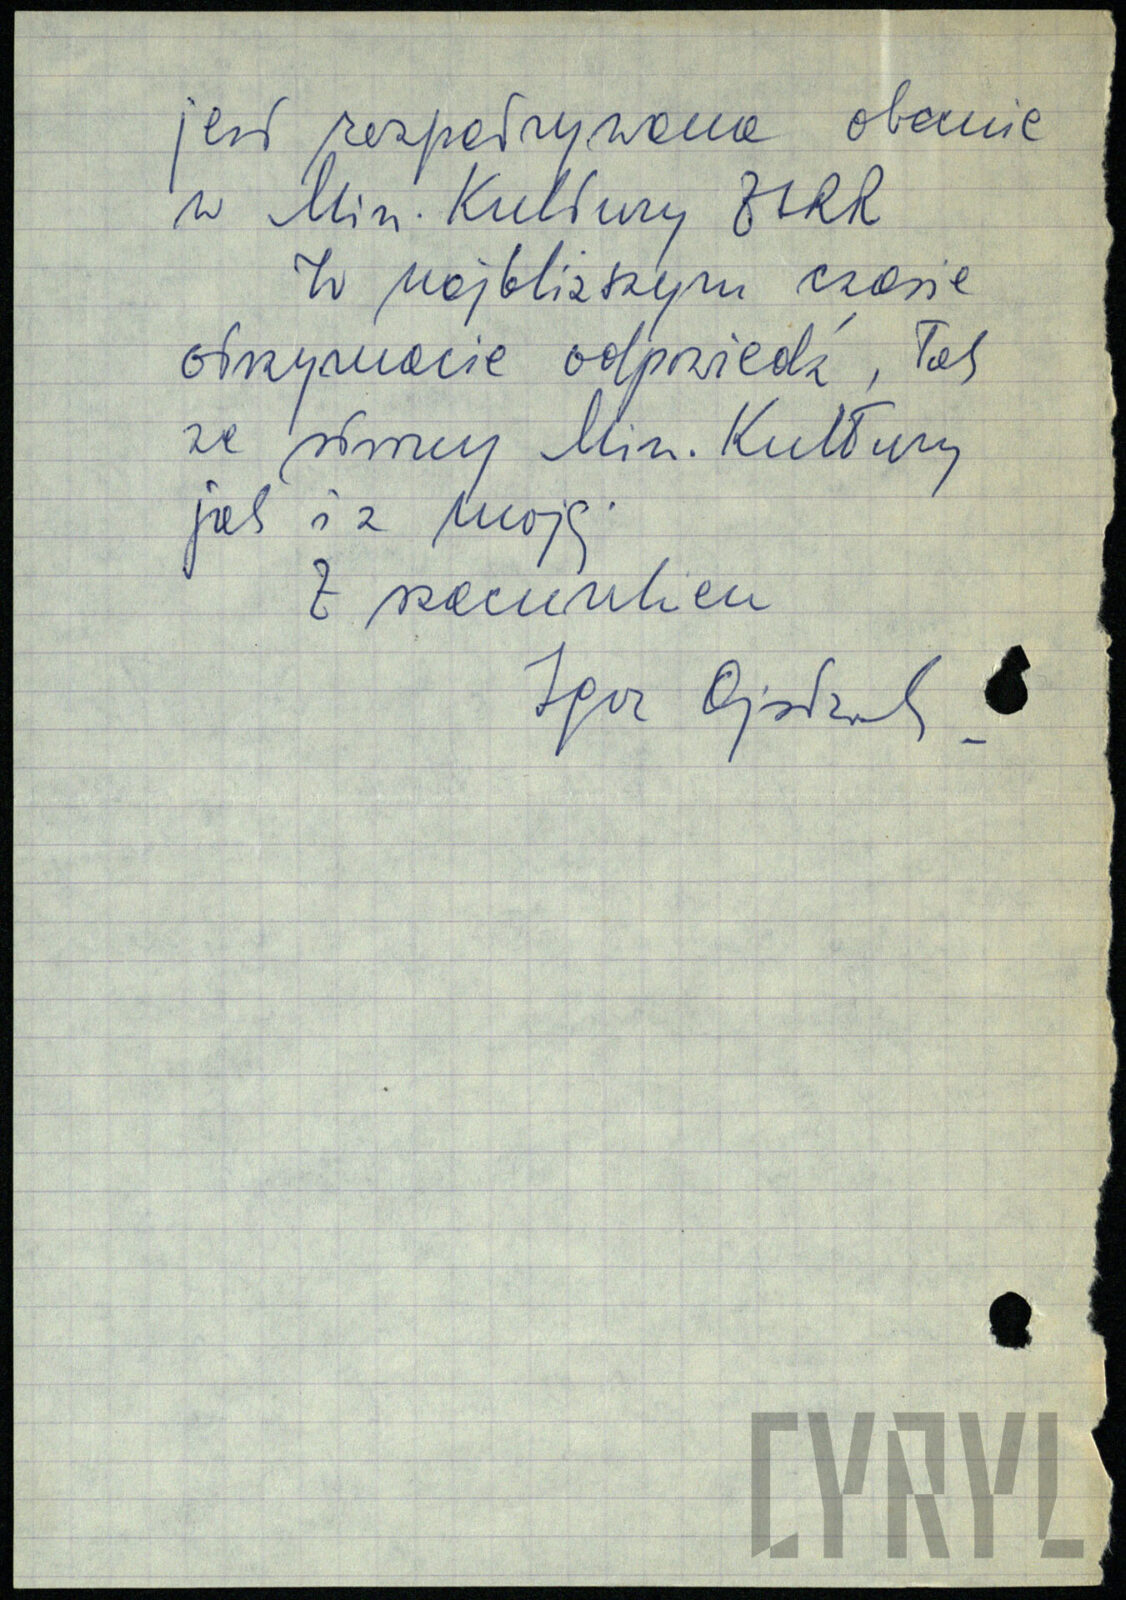 jest rozpatrywana obecnie
w Min. Kultury ZSRR
W najbliższym czasie
otrzymacie odpowiedź, tak
ze strony Min. Kultury
jak i z moją.
Z szacunkiem
Igor Ojstrach
CYRYL